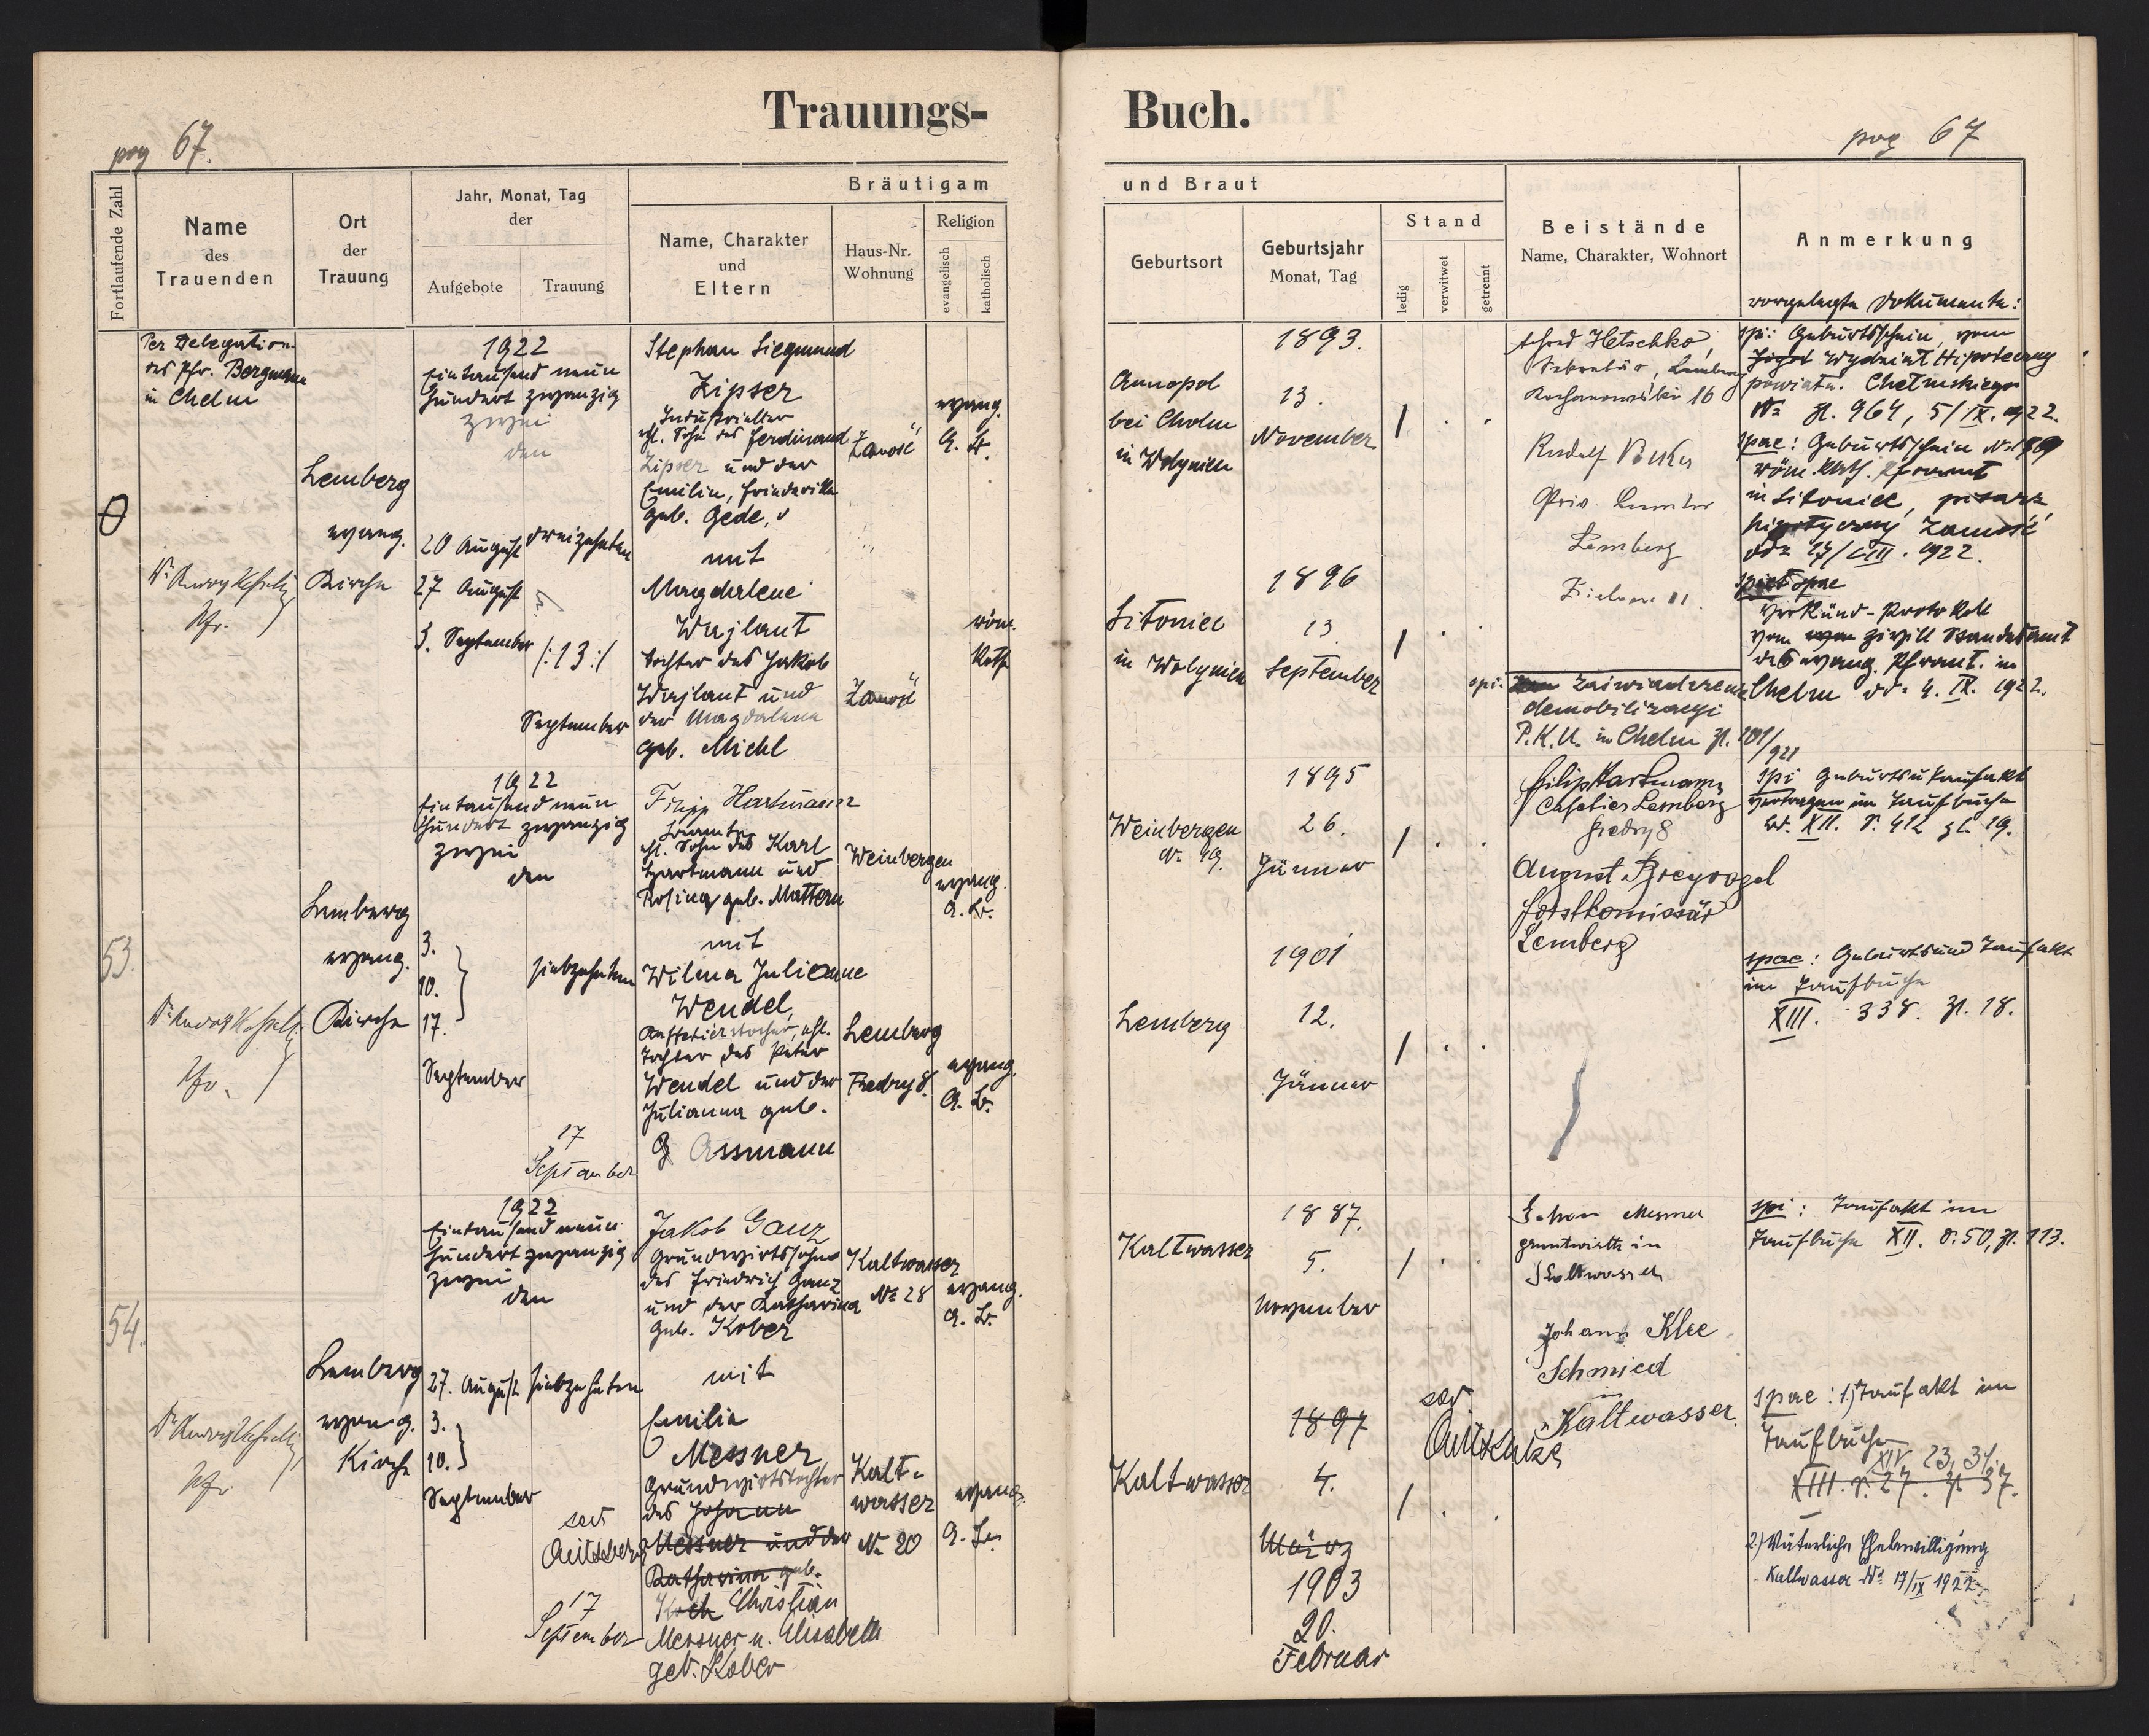 Trauungs-
pag 67.
Fortlaufende Zahl
Name
des
Trauenden
Ort
der
Trauung
Jahr, Monat, Tag
der
Aufgebote
Trauung
Bräutigam
Name, Charakter
und
Eltern
Haus-Nr.
Wohnung
Religion
evangelisch
katholisch
Per Delegation
des Pfr. Bergmann
in Chelm
Pfr.
Lemberg
evang.
Kirche
1922
Eintausend neun
hundert zwanzig
zwei
den
20 August
27 August
3. September
dreizehnten
/:13:/
September
Stephan Siegmund
Zipser
Industrieller
ehl. Sohn des Ferdinand
Zipser und der
Emilie, Friederike
geb. Gede,
mit
Magdalene
Wajlant
Tochter des Jakob
Wajlant und
der Magdalena
geb. Michl
Zamość
Zamość
evang.
A. B.
röm.
Kath
53.
Pfr.
Lemberg
evang.
Kirche
1922
Eintausend neun
hundert zwanzig
zwei
den
3.
10.
17.
September
siebzehnten
17
September
Filipp Hartmann
Beamter
ehl. Sohn des Karl
Hartmann und
Rosina geb. Mattern
mit
Wilma Juliane
Wendel,
ehl.
Tochter des Peter
Wendel und der
Julianna geb.
Assmann
Weinbergen
Lemberg
Fredry 8.
evang.
A. B.
evang.
A. B.
54.
Pfr
Lemberg
evang.
Kirche
1922
Eintausend neun
hundert zwanzig
zwei
den
27. August
3.
10.
September
siebzehnten
17
September
Jakob Ganz
Grundwirtssohn
des Friedrich Ganz
und der Katharina
geb. Kober
mit
Emilia
Messner
Grundwirtstochter
des Johann
Messner und der
Katharina geb.
Koch Christian
Messner u. Elisabeth
geb. Kober
Kaltwasser
№ 28
Kalt-
wasser
№ 20
evang.
A. B.
evang.
A. B.
Buch.
pag 67
und Braut
Geburtsort
Geburtsjahr
Monat, Tag
Stand
ledig
verwitwet
getrennt
Beistände
Name, Charakter, Wohnort
Anmerkung
vorgelegte Dokumente:
Annopol
bei Cholm
in Wolynien
1893.
13.
November
Sitoniec
in Wolynien
1896
13.
September
Alfred Hetschko,
Sekretär, Lemberg
Kochanowski 16
Rudolf
Lemberg
Zielona 11.
spi: Geburtsschein, vom
Wydział Hipoteczny
powiatu. Chełmskiego
№ zl. 964, 5/IX. 1922.
spae: Geburtsschein
röm. Kath. Pfarramt
in Sitoniec, pisarz
hipotyczny Zamość
17/VIII. 1922.
Verkünd-Protokoll
vom Zivill Standesamt
des evang. Pframt. in
Chelm dd. 4. IX. 1922.
spi: Zaświadczenie
demobilizacyi
P.K.U. in Chelm zl. 101/921
Weinbergen
№ 49.
1895
26.
Jänner
Lemberg
1901
12.
Jänner
Filip Hartmann
Lemberg
Fredry 8
August Breyvogel
Forstkomissär
Lemberg
spi Geburts u Taufakt
vertragen im Taufbuche
Bd. XII. S. 412 zl. 19.
spae: Geburts und Taufakt
im Taufbuche
XIII. 338. zl. 18.
Kaltwasser
1887.
5.
November
Kaltwasser
1897
4.
März
1903
20.
Februar
Johann Klee
Schmied
in
Kaltwasser.
spi: Taufakt im
Taufbuche XII. S. 50, zl. 113.
spae: 1) Taufakt im
Taufbuche
XIV 23, 31.
XIII. S. 27. zl 37.
2.) Väterliche Ehebewilligung
Kaltwasser dd. 17/IX 1922.